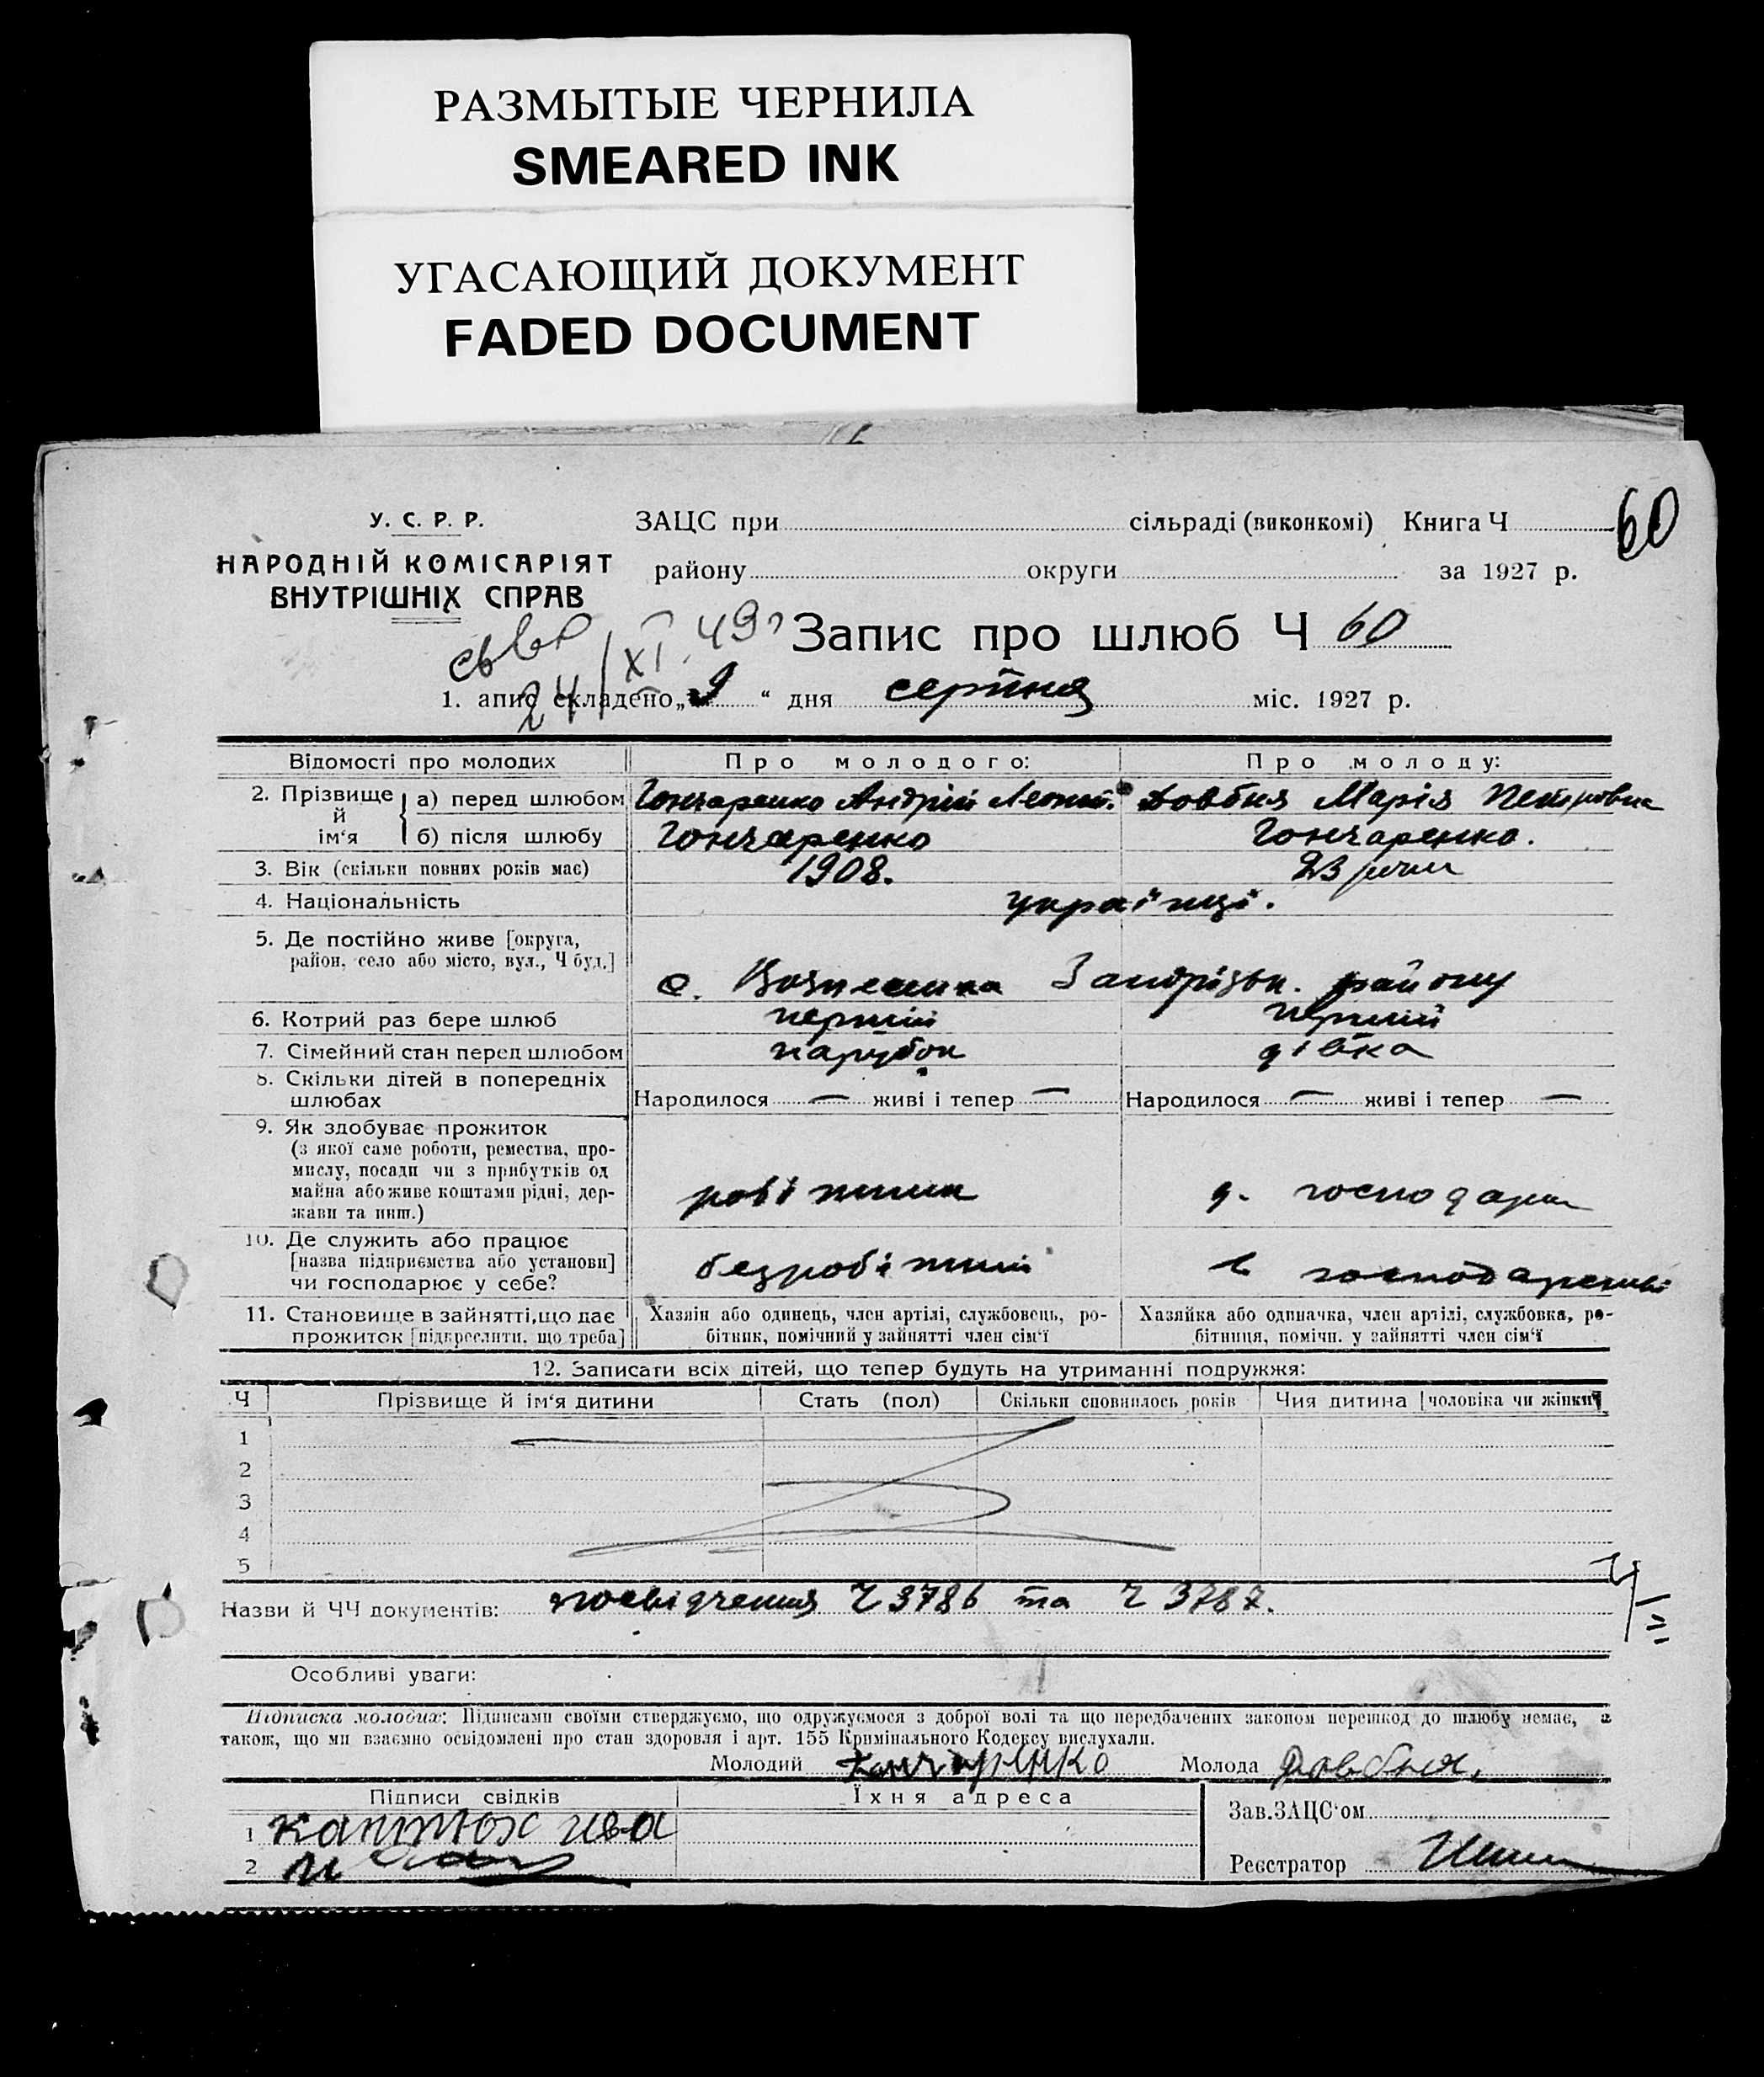 РАЗМЫТЫЕ ЧЕРНИЛА
SMEARED INK
УГАСАЮЩИЙ ДОКУМЕНТ
FADED DOCUMENT
60
У. С. Р. Р.
НАРОДНІЙ КОМІСАРІЯТ
ВНУТРІШНІХ СПРАВ
ЗАЦС при сільраді (виконкомі) Книга Ч
району округи за 1927 р.
24/XI.49
Запис про шлюб Ч 60
1. апис складено „9“ дня серпня міс. 1927 р.
Відомості про молодих Про молодого: Про молоду:
2. Прізвище й ім‘я
а) перед шлюбом Гончаренко Андрій Леонт. Довбня Марія Петровна
б) після шлюбу Гончаренко Гончаренко.
3. Вік (скільки повних років має) 1908. 23 роки
4. Національність українці.
5. Де постійно живе [округа,
район, село або місто, вул., Ч буд.]
с. Вознесенка Запорізьк. району
6. Котрий раз бере шлюб перший перший
7. Сімейний стан перед шлюбом парубок дівка
8. Скільки дітей в попередніх
шлюбах Народилося — живі і тепер — Народилося — живі і тепер —
9. Як здобуває прожиток
(з якої саме роботи, ремества, про-
мислу, посади чи з прибутків од
майна або живе коштами рідні, дер-
жави та инш.)
робітник д. господарка
10. Де служить або працює
[назва підприємства або установи]
чи господарює у себе?
безробітний в господарстві
11. Становище в зайнятті, що дає
прожиток [підкреслити, що треба]
Хазяїн або одинець, член артілі, службовець, ро-
бітник, помічний у зайнятті член сім‘ї
Хазяйка або одиначка, член артілі, службовка, ро-
бітниця, помічн. у зайнятті член сім‘ї
12. Записати всіх дітей, що тепер будуть на утриманні подружжя:
Ч Прізвище й ім‘я дитини Стать (пол) Скільки сповнилось років Чия дитина [чоловіка чи жінки]
1
2
3
4
5
Назви й ЧЧ документів: посвідчення Ч 3786 та Ч 3787.
Особливі уваги:
Підписка молодих: Підписами своїми стверджуємо, що одружуємося з доброї волі та що передбачених законом перешкод до шлюбу немає, а
також, що ми взаємно освідомлені про стан здоровля і арт. 155 Кримінального Кодексу вислухали.
Молодий Гончаренко Молода Довбня.
Підписи свідків Їхня адреса
1
2
Зав. ЗАЦС‘ом
Реєстратор